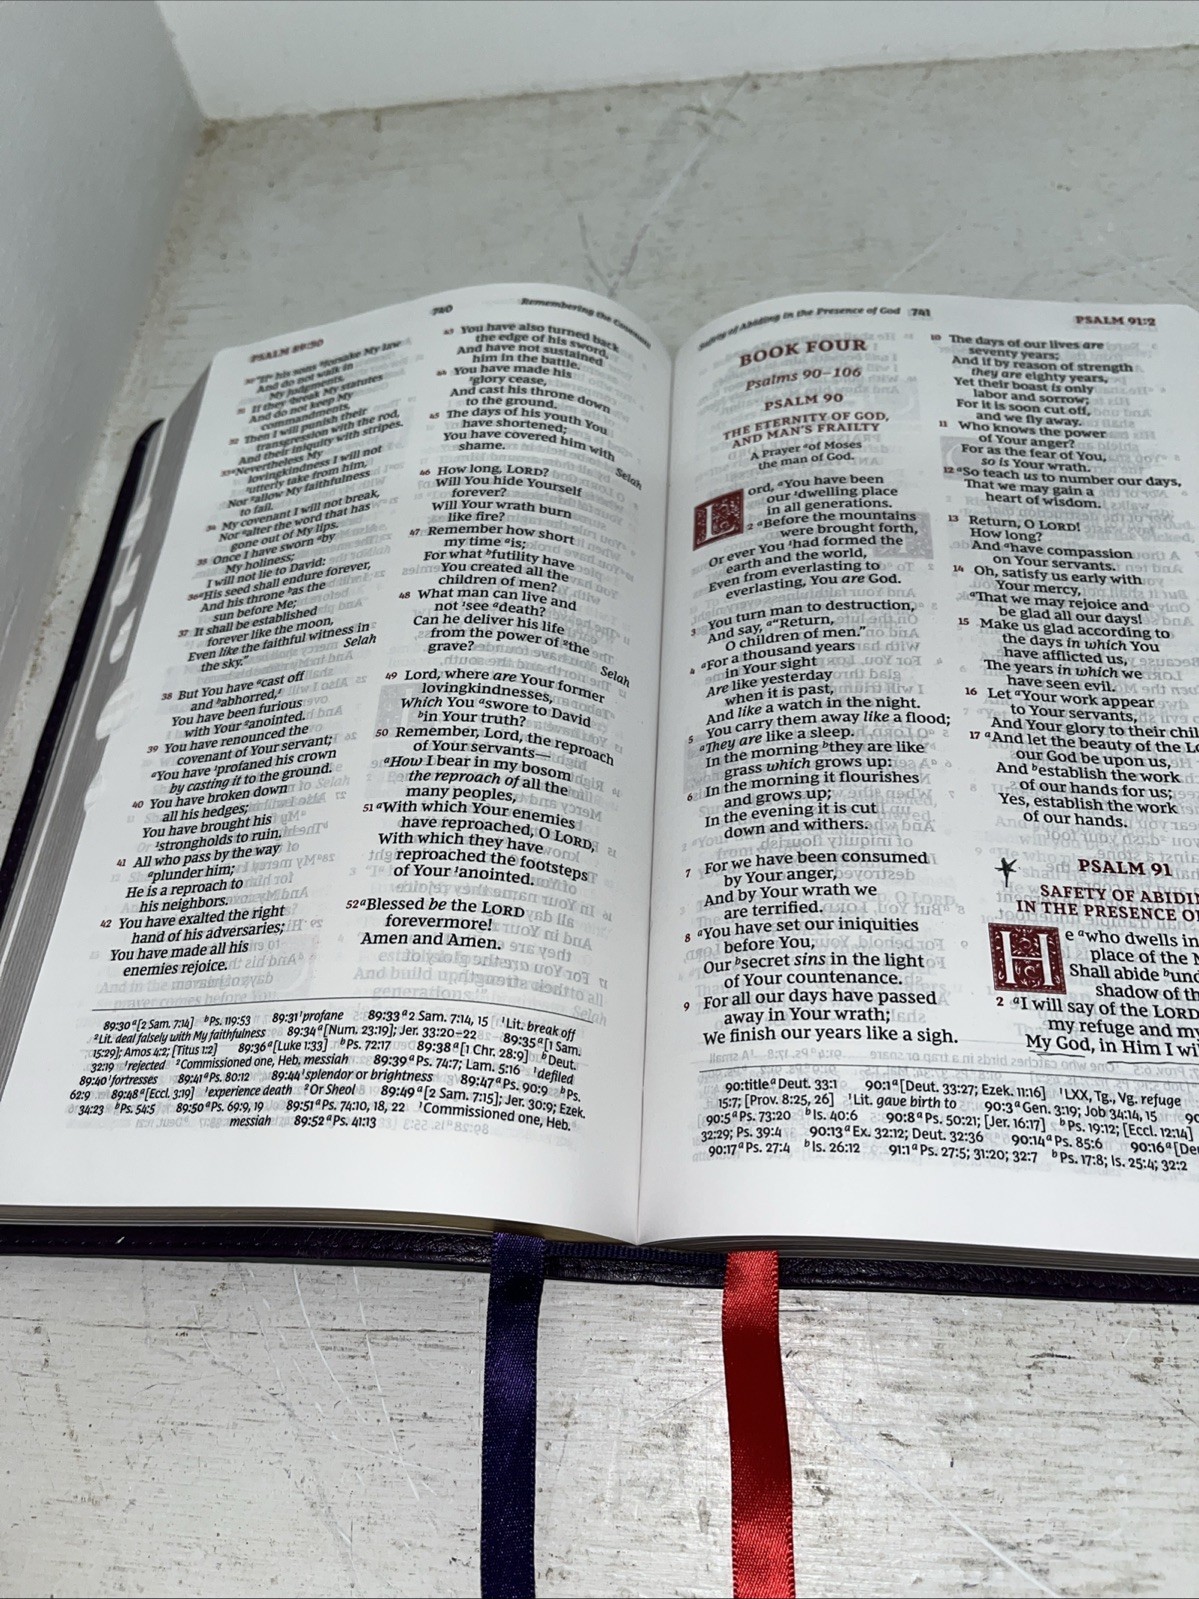 PSALM 89:30
740
Remembering the Covenant
30 "If his sons forsake My law
And do not walk in
My judgments,
31 If they break My statutes
And do not keep My
commandments,
32 Then I will punish their
transgression with the rod,
And their iniquity with stripes.
33 aNevertheless My
lovingkindness I will not
1utterly take from him,
Nor 2allow My faithfulness
to fail.
34 My covenant I will not break,
Nor aalter the word that has
gone out of My lips.
35 Once I have sworn aby
My holiness;
I will not lie to David:
36 aHis seed shall endure forever,
And his throne bas the
sun before Me;
37 It shall be established
forever like the moon,
Even like the faithful witness in
the sky." Selah
38 But You have acast off
and babhorred,1
You have been furious
with Your 2anointed.
39 You have renounced the
covenant of Your servant;
aYou have 1profaned his crown
by casting it to the ground.
40 You have broken down
all his hedges;
You have brought his
1strongholds to ruin.
41 All who pass by the way
aplunder him;
He is a reproach to
his neighbors.
42 You have exalted the right
hand of his adversaries;
You have made all his
enemies rejoice.
43 You have also turned back
the edge of his sword,
And have not sustained
him in the battle.
44 You have made his
1glory cease,
And cast his throne down
to the ground.
45 The days of his youth You
have shortened;
You have covered him with
shame. Selah
46 How long, LORD?
Will You hide Yourself
forever?
Will Your wrath burn
like fire?
47 Remember how short
my time ais;
For what bfutility have
You created all the
children of men?
48 What man can live and
not 1see adeath?
Can he deliver his life
from the power of 2the
grave? Selah
49 Lord, where are Your former
lovingkindnesses,
Which You aswore to David
bin Your truth?
50 Remember, Lord, the reproach
of Your servants—
aHow I bear in my bosom
the reproach of all the
many peoples,
51 aWith which Your enemies
have reproached, O LORD,
With which they have
reproached the footsteps
of Your 1anointed.
52 aBlessed be the LORD
forevermore!
Amen and Amen.
89:30 a[2 Sam. 7:14] bPs. 119:53 89:31 1profane 89:33 a2 Sam. 7:14, 15 1Lit. break off
2Lit. deal falsely with My faithfulness 89:34 a[Num. 23:19]; Jer. 33:20–22 89:35 a[1 Sam.
15:29]; Amos 4:2; [Titus 1:2] 89:36 a[Luke 1:33] bPs. 72:17 89:38 a[1 Chr. 28:9] bDeut.
32:19 1rejected 2Commissioned one, Heb. messiah 89:39 aPs. 74:7; Lam. 5:16 1defiled
89:40 1fortresses 89:41 aPs. 80:12 89:44 1splendor or brightness 89:47 aPs. 90:9 bPs.
62:9 89:48 a[Eccl. 3:19] 1experience death 2Or Sheol 89:49 a[2 Sam. 7:15]; Jer. 30:9; Ezek.
34:23 bPs. 54:5 89:50 aPs. 69:9, 19 89:51 aPs. 74:10, 18, 22 1Commissioned one, Heb.
messiah 89:52 aPs. 41:13
Safety of Abiding in the Presence of God
741
PSALM 91:2
BOOK FOUR
Psalms 90–106
PSALM 90
THE ETERNITY OF GOD,
AND MAN'S FRAILTY
A Prayer aof Moses
the man of God.
Lord, aYou have been
our 1dwelling place
in all generations.
2 aBefore the mountains
were brought forth,
Or ever You 1had formed the
earth and the world,
Even from everlasting to
everlasting, You are God.
3 You turn man to destruction,
And say, a"Return,
O children of men."
4 aFor a thousand years
in Your sight
Are like yesterday
when it is past,
And like a watch in the night.
5 You carry them away like a flood;
aThey are like a sleep.
In the morning bthey are like
grass which grows up:
6 In the morning it flourishes
and grows up;
In the evening it is cut
down and withers.
7 For we have been consumed
by Your anger,
And by Your wrath we
are terrified.
8 aYou have set our iniquities
before You,
Our bsecret sins in the light
of Your countenance.
9 For all our days have passed
away in Your wrath;
We finish our years like a sigh.
10 The days of our lives are
seventy years;
And if by reason of strength
they are eighty years,
Yet their boast is only
labor and sorrow;
For it is soon cut off,
and we fly away.
11 Who knows the power
of Your anger?
For as the fear of You,
so is Your wrath.
12 aSo teach us to number our days,
That we may gain a
heart of wisdom.
13 Return, O LORD!
How long?
And ahave compassion
on Your servants.
14 Oh, satisfy us early with
Your mercy,
aThat we may rejoice and
be glad all our days!
15 Make us glad according to
the days in which You
have afflicted us,
The years in which we
have seen evil.
16 Let aYour work appear
to Your servants,
And Your glory to their chil
17 aAnd let the beauty of the Lo
our God be upon us,
And bestablish the work
of our hands for us;
Yes, establish the work
of our hands.
PSALM 91
SAFETY OF ABIDIN
IN THE PRESENCE OF
He awho dwells in
place of the M
Shall abide bund
shadow of th
2 aI will say of the LORD
my refuge and my
My God, in Him I wi
90:title aDeut. 33:1 90:1 a[Deut. 33:27; Ezek. 11:16] 1LXX, Tg., Vg. refuge
15:7; [Prov. 8:25, 26] 1Lit. gave birth to 90:3 aGen. 3:19; Job 34:14, 15 90
90:5 aPs. 73:20 bIs. 40:6 90:8 aPs. 50:21; [Jer. 16:17] bPs. 19:12; [Eccl. 12:14]
32:29; Ps. 39:4 90:13 aEx. 32:12; Deut. 32:36 90:14 aPs. 85:6 90:16 a[De
90:17 aPs. 27:4 bIs. 26:12 91:1 aPs. 27:5; 31:20; 32:7 bPs. 17:8; Is. 25:4; 32:2